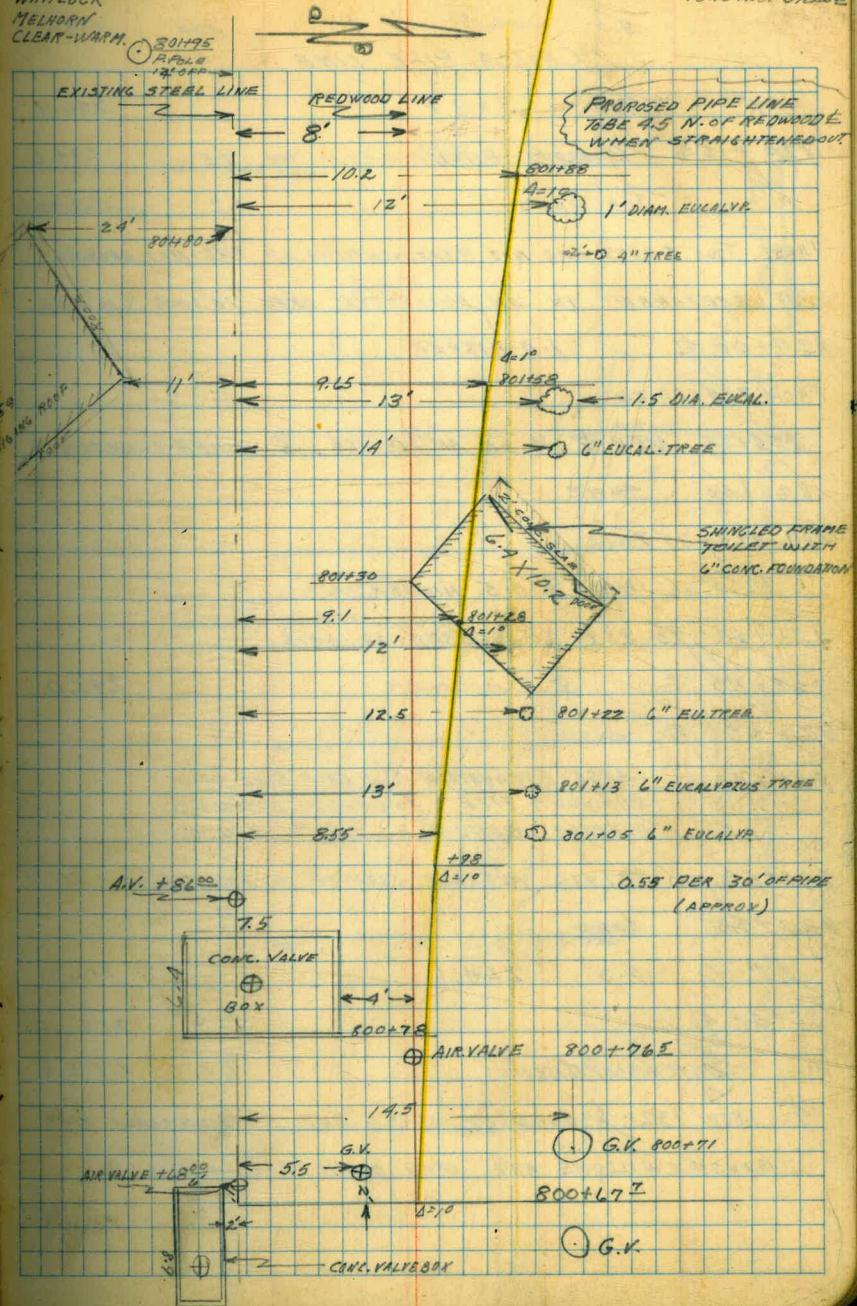 MELHORN
CLEAR-WARM.
801+95
P.POLE
12' OFF
EXISTING STEEL LINE
REDWOOD LINE
8'
PROPOSED PIPE LINE
TO BE 4.5 N. OF REDWOOD ℄
WHEN STRAIGHTENED OUT
10.2
801+88
Δ=1°
12'
1' DIAM. EUCALYP.
24'
801+80
4" TREE
ROOF
Δ=1°
11'
9.65
801+58
13'
1.5 DIA. EUCAL.
ROOF
14'
6" EUCAL. TREE
2' CONC. SLAB
6.4 X 10.2
DOOR
SHINGLED FRAME
TOILET WITH
6" CONC. FOUNDATION
801+30
9.1
801+28
Δ=1°
12'
12.5
801+22 6" EU. TREE
13'
801+13 6" EUCALYPTUS TREE
8.55
801+05 6" EUCALYP.
+98
Δ=1°
0.55 PER 30' OF PIPE
(APPROX)
A.V. +86.00
7.5
CONC. VALVE
BOX
6.4
4'
800+78
AIR VALVE 800+76 5
14.5
G.V.
G.V. 800+71
AIR VALVE +68.00
5.5
2'
800+67 7
Δ=1°
2'
G.V.
CONC. VALVE BOX